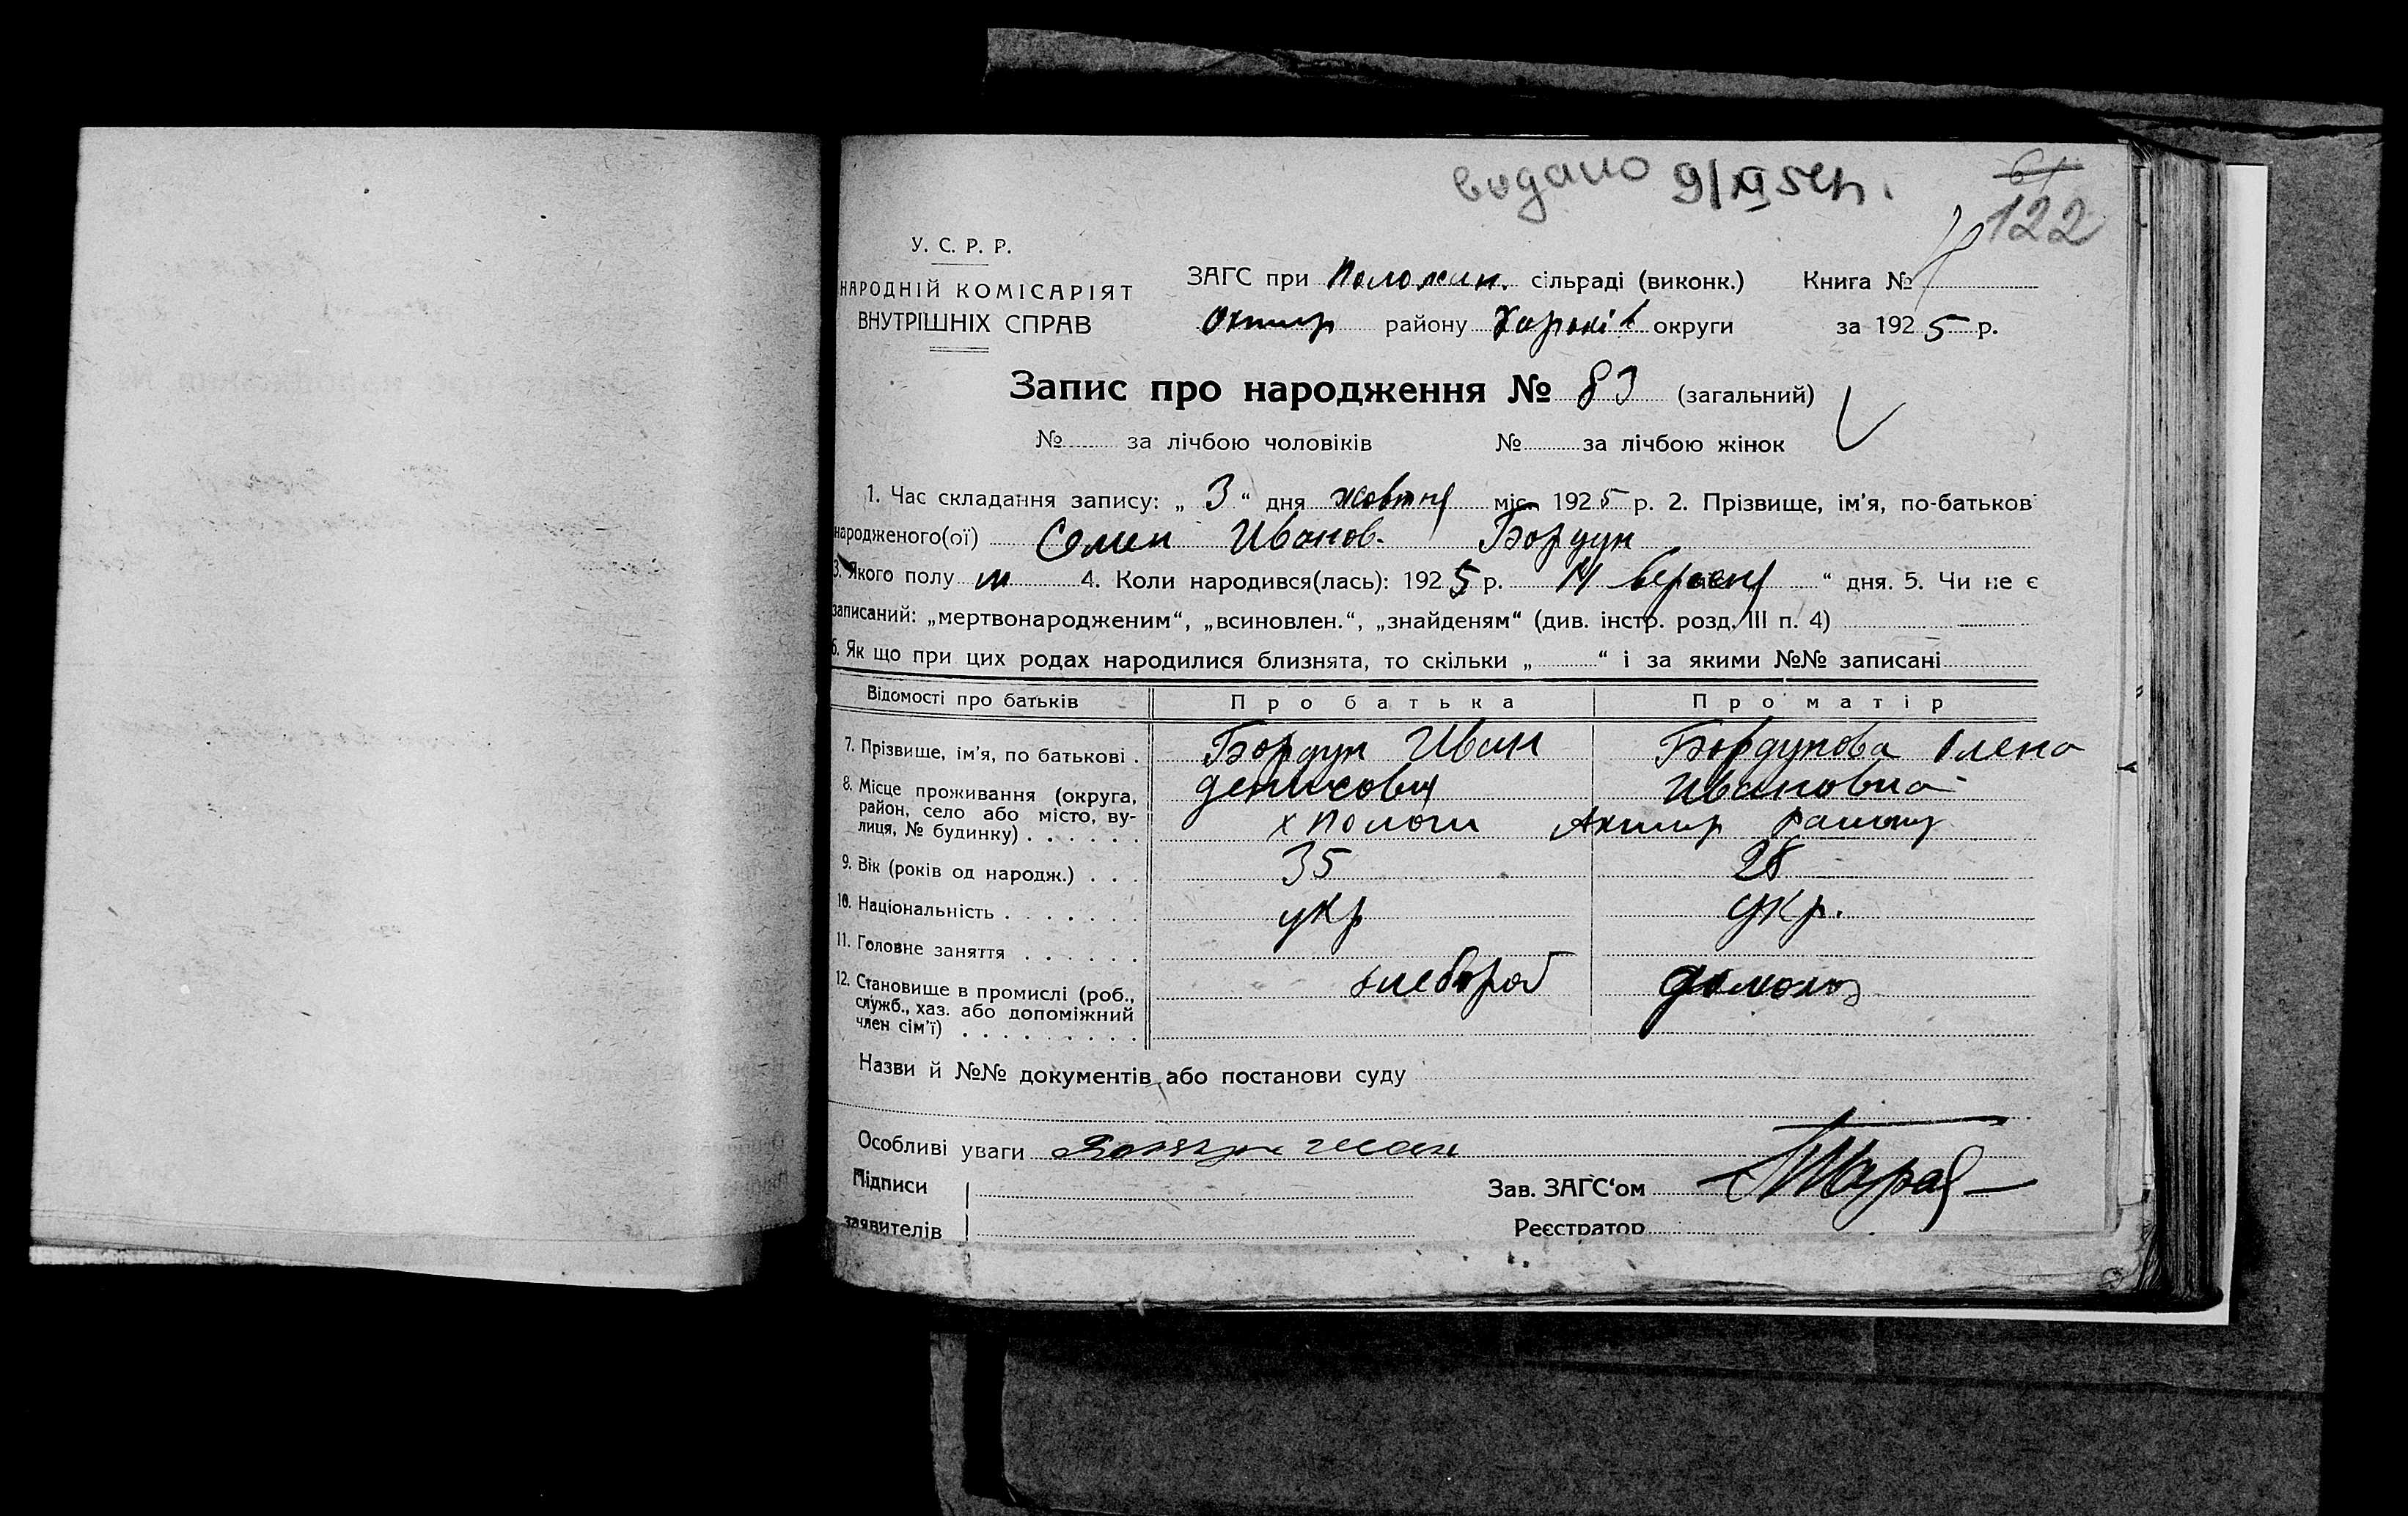 видано 9/XI 54 р.
61
122
У. С. Р. Р.
НАРОДНІЙ КОМІСАРІЯТ
ВНУТРІШНІХ СПРАВ
ЗАГС при сільраді (виконк.) Книга №
району Харькі округи за 1925 р.
Запис про народження № 83 (загальний)
№ за лічбою чоловіків № за лічбою жінок
1. Час складання запису: „ 3 “ дня жовтня міс. 1925 р. 2. Прізвище, ім'я, по-батьков
народженого(ої) Семен Иванов. Бордун
3. Якого полу м 4. Коли народився(лась): 1925 р. 14 вересня “ дня. 5. Чи не є
записаний: „мертвонародженим“, „всиновлен.“, „знайденям“ (див. інстр. розд. III п. 4)
6. Як що при цих родах народилися близнята, то скільки „ “ і за якими №№ записані
Відомості про батьків Про батька Про матір
7. Прізвище, ім'я, по батькові . Бордун Иван Бордунова Олена
8. Місце проживання (округа, Денисович Ивановна
район, село або місто, ву-
лиця, № будинку) . . . . . . х Пологи Ахтир району
9. Вік (років од народж.) . . . 35 28
10. Національність . . . . . . . укр укр.
11. Головне заняття . . . . . .
12. Становище в промислі (роб., хлебороб домохоз
служб., хаз. або допоміжний
член сім'ї) . . . . . . . . .
Назви й №№ документів або постанови суду
Особливі уваги
Підписи Зав. ЗАГС‘ом
заявителів Реєстратор